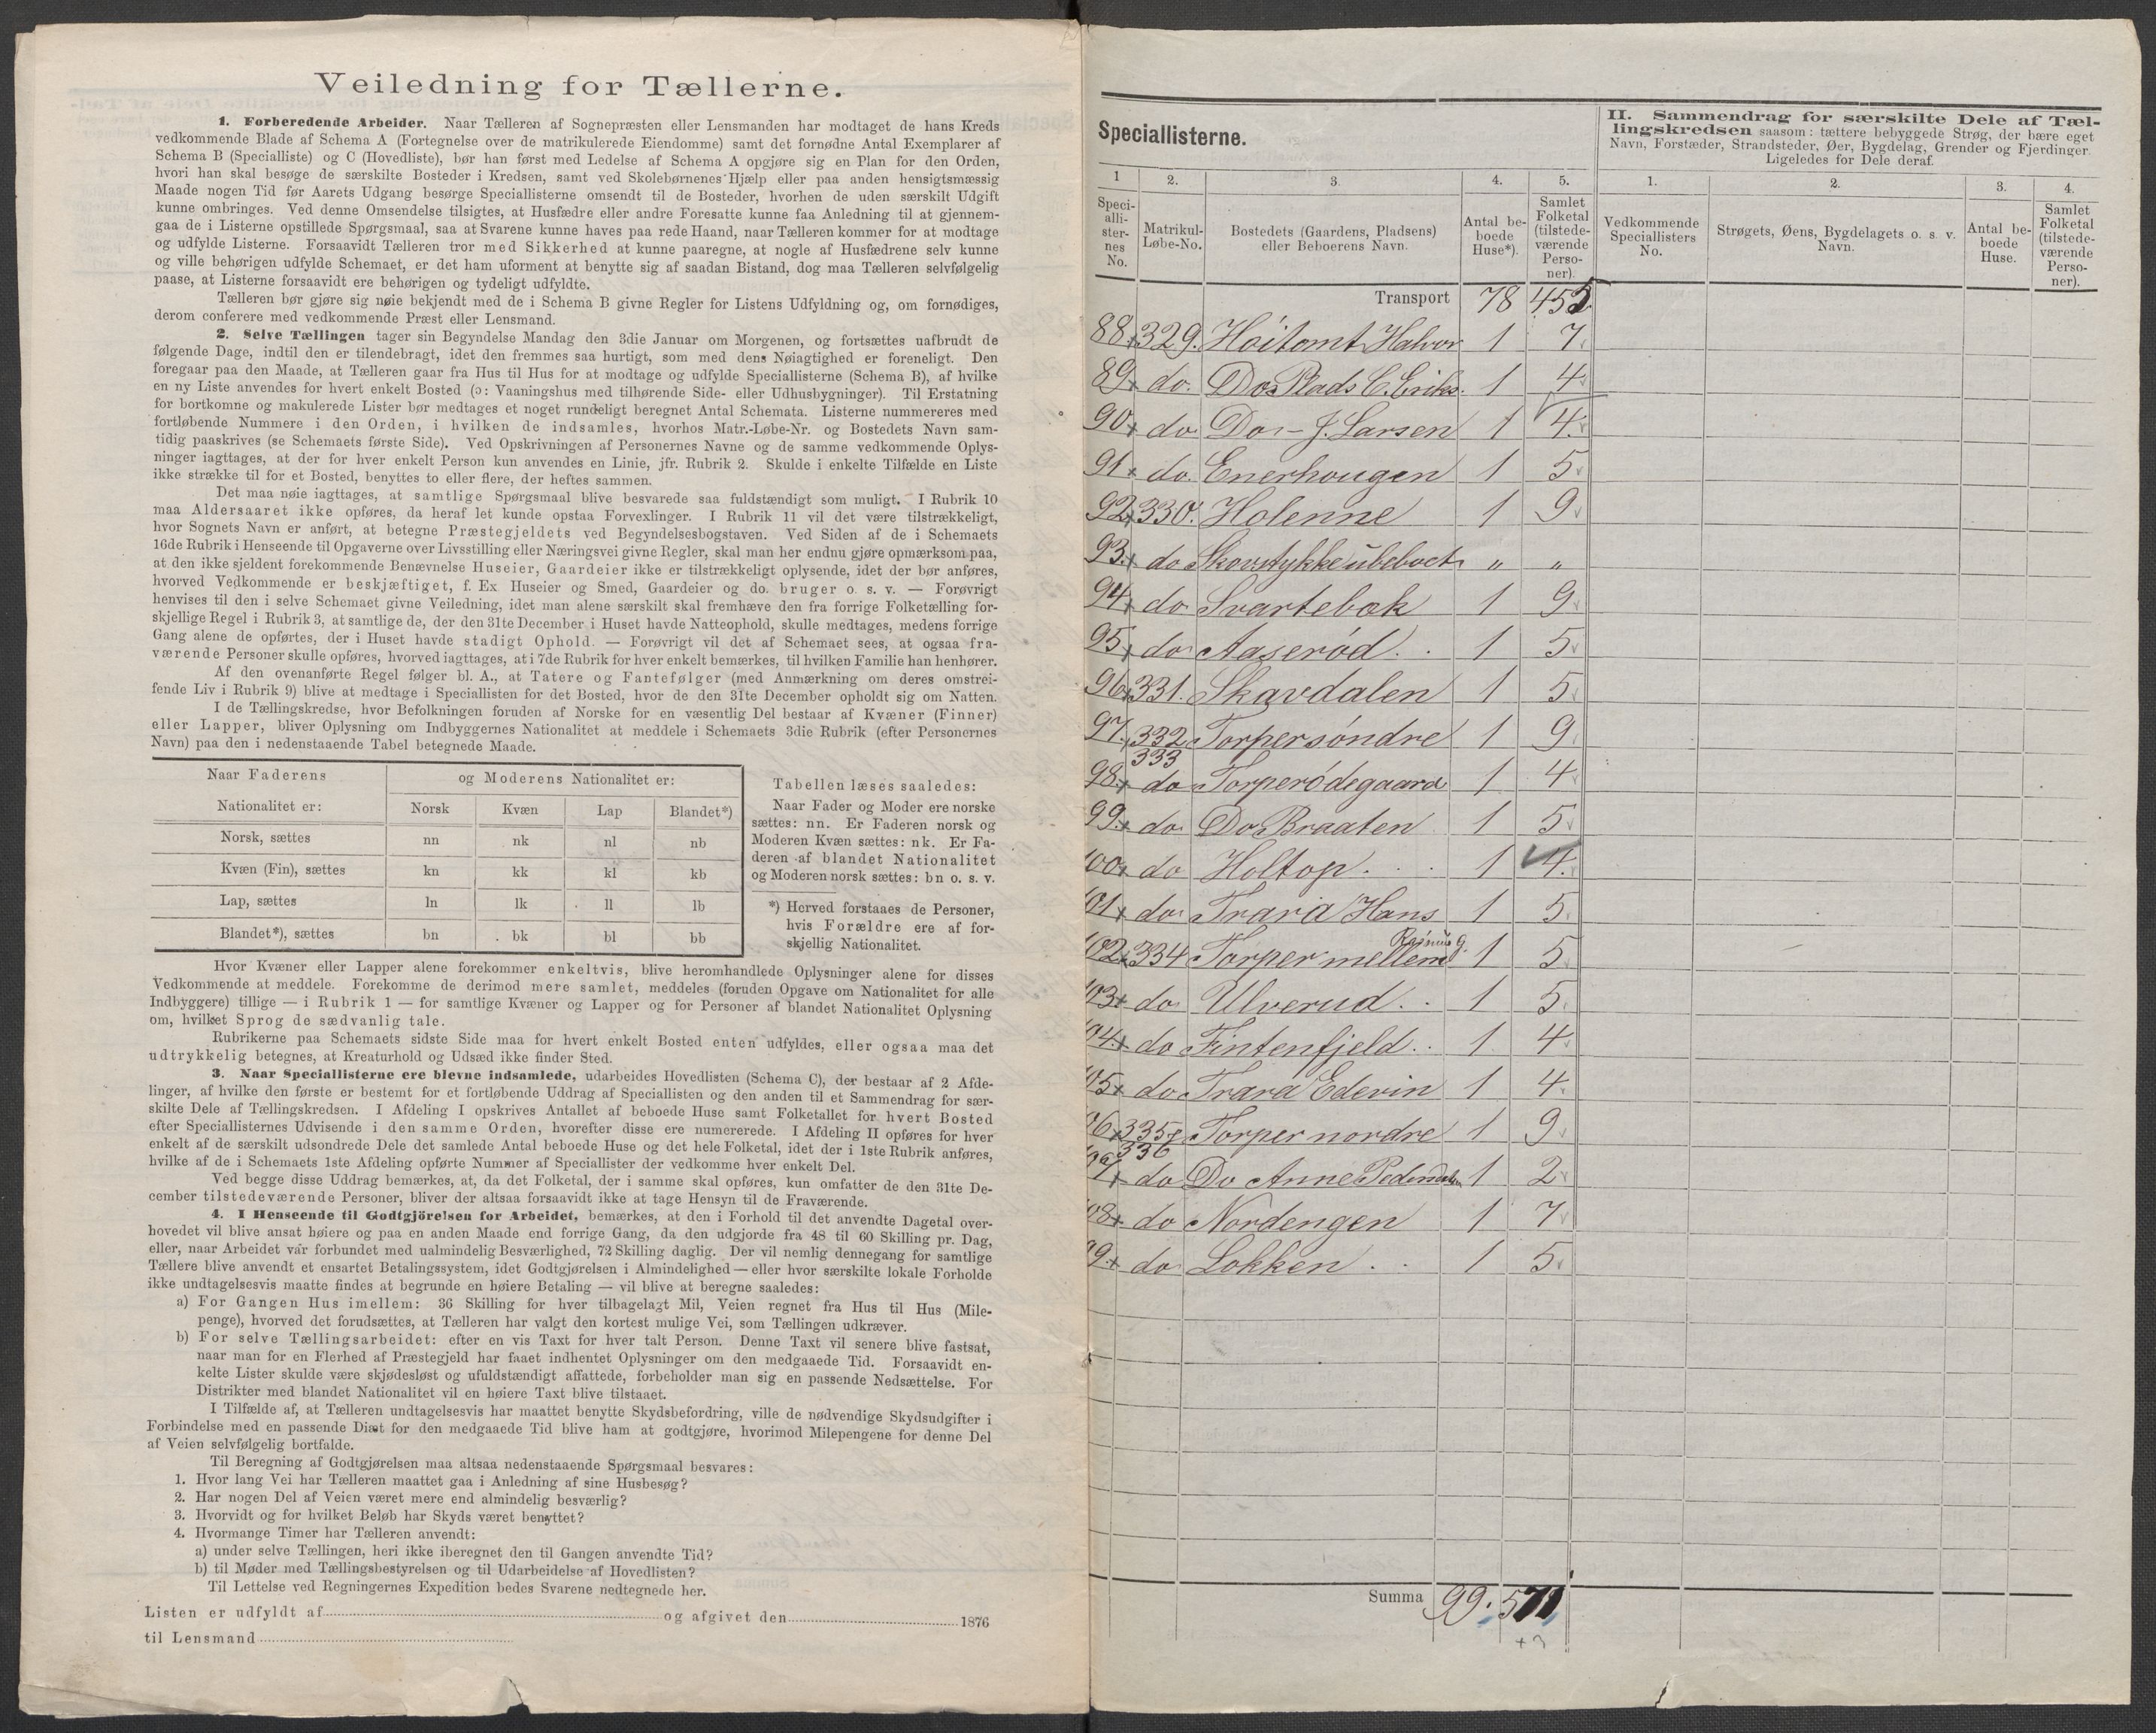 Veiledning for Tællerne.
1. Forberedende Arbeider. Naar Tælleren af Sognepræsten eller Lensmanden har modtaget de hans Kreds
vedkommende Blade af Schema A (Fortegnelse over de matrikulerede Eiendomme) samt det fornødne Antal Exemplarer af
Schema B (Specialliste) og C (Hovedliste), bør han først med Ledelse af Schema A opgjøre sig en Plan for den Orden,
hvori han skal besøge de særskilte Bosteder i Kredsen, samt ved Skolebørnenes Hjælp eller paa anden hensigtsmæssig
Maade nogen Tid før Aarets Udgang besørge Speciallisterne omsendt til de Bosteder, hvorhen de uden særskilt Udgift
kunne ombringes. Ved denne Omsendelse tilsigtes, at Husfædre eller andre Foresatte kunne faa Anledning til at gjennem-
gaa de i Listerne opstillede Spørgsmaal, saa at Svarene kunne haves paa rede Haand, naar Tælleren kommer for at modtage
og udfylde Listerne. Forsaavidt Tælleren tror med Sikkerhed at kunne paaregne, at nogle af Husfædrene selv kunne
og ville behørigen udfylde Schemaet, er det ham uforment at benytte sig af saadan Bistand, dog maa Tælleren selvfølgelig
paase, at Listerne forsaavidt ere behørigen og tydeligt udfyldte.
Tælleren bør gjøre sig nøie bekjendt med de i Schema B givne Regler for Listens Udfyldning og, om fornødiges,
derom conferere med vedkommende Præst eller Lensmand.
2. Selve Tællingen tager sin Begyndelse Mandag den 3die Januar om Morgenen, og fortsættes uafbrudt de
følgende Dage, indtil den er tilendebragt, idet den fremmes saa hurtigt, som med dens Nøiagtighed er foreneligt. Den
foregaar paa den Maade, at Tælleren gaar fra Hus til Hus for at modtage og udfylde Speciallisterne (Schema B), af hvilke
en ny Liste anvendes for hvert enkelt Bosted (ɔ: Vaaningshus med tilhørende Side- eller Udhusbygninger). Til Erstatning
for bortkomne og makulerede Lister bør medtages et noget rundeligt beregnet Antal Schemata. Listerne nummereres med
fortløbende Nummere i den Orden, i hvilken de indsamles, hvorhos Matr.-Løbe-Nr. og Bostedets Navn sam-
tidig paaskrives (se Schemaets første Side). Ved Opskrivningen af Personernes Navne og de samme vedkommende Oplys-
ninger iagttages, at der for hver enkelt Person kun anvendes en Linie, jfr. Rubrik 2. Skulde i enkelte Tilfælde en Liste
ikke strække til for et Bosted, benyttes to eller flere, der heftes sammen.
Det maa nøie iagttages, at samtlige Spørgsmaal blive besvarede saa fuldstændigt som muligt. I Rubrik 10
maa Aldersaaret ikke opføres, da heraf let kunde opstaa Forvexlinger. I Rubrik 11 vil det være tilstrækkeligt,
hvor Sognets Navn er anført, at betegne Præstegjeldets ved Begyndelsesbogstaven. Ved Siden af de i Schemaets
16de Rubrik i Henseende til Opgaverne over Livsstilling eller Næringsvei givne Regler, skal man her endnu gjøre opmærksom paa,
at den ikke sjeldent forekommende Benævnelse Huseier, Gaardeier ikke er tilstrækkeligt oplysende, idet der bør anføres,
hvorved Vedkommende er beskjæftiget, f. Ex Huseier og Smed, Gaardeier og do. bruger o. s. v. — Forøvrigt
henvises til den i selve Schemaet givne Veiledning, idet man alene særskilt skal fremhæve den fra forrige Folketælling for-
skjellige Regel i Rubrik 3, at samtlige de, der den 31te December i Huset havde Natteophold, skulle medtages, medens forrige
Gang alene de opførtes, der i Huset havde stadigt Ophold. — Forøvrigt vil det af Schemaet sees, at ogsaa fra-
værende Personer skulle opføres, hvorved iagttages, at i 7de Rubrik for hver enkelt bemærkes, til hvilken Familie han henhører.
Af den ovenanførte Regel følger bl. A., at Tatere og Fantefølger (med Anmærkning om deres omstrei-
fende Liv i Rubrik 9) blive at medtage i Speciallisten for det Bosted, hvor de den 31te December opholdt sig om Natten.
I de Tællingskredse, hvor Befolkningen foruden af Norske for en væsentlig Del bestaar af Kvæner (Finner)
eller Lapper, bliver Oplysning om Indbyggernes Nationalitet at meddele i Schemaets 3die Rubrik (efter Personernes
Navn) paa den i nedenstaaende Tabel betegnede Maade.
Naar Faderens og Moderens Nationalitet er:
Nationalitet er: Norsk Kvæn Lap Blandet*)
Norsk, sættes nn nk nl nb
Kvæn (Fin), sættes kn kk kl kb
Lap, sættes ln lk ll lb
Blandet*), sættes bn bk bl bb
Tabellen læses saaledes:
Naar Fader og Moder ere norske
sættes: nn. Er Faderen norsk og
Moderen Kvæn sættes: nk. Er Fa-
deren af blandet Nationalitet
og Moderen norsk sættes: bn o. s. v.
*) Herved forstaaes de Personer,
hvis Forældre ere af for-
skjellig Nationalitet.
Hvor Kvæner eller Lapper alene forekommer enkeltvis, blive heromhandlede Oplysninger alene for disses
Vedkommende at meddele. Forekomme de derimod mere samlet, meddeles (foruden Opgave om Nationalitet for alle
Indbyggere) tillige — i Rubrik 1 — for samtlige Kvæner og Lapper og for Personer af blandet Nationalitet Oplysning
om, hvilket Sprog de sædvanlig tale.
Rubrikerne paa Schemaets sidste Side maa for hvert enkelt Bosted enten udfyldes, eller ogsaa maa det
udtrykkelig betegnes, at Kreaturhold og Udsæd ikke finder Sted.
3. Naar Speciallisterne ere blevne indsamlede, udarbeides Hovedlisten (Schema C), der bestaar af 2 Afde-
linger, af hvilke den første er bestemt for et fortløbende Uddrag af Speciallisten og den anden til et Sammendrag for sær-
skilte Dele af Tællingskredsen. I Afdeling I opskrives Antallet af beboede Huse samt Folketallet for hvert Bosted
efter Speciallisternes Udvisende i den samme Orden, hvorefter disse ere numererede. I Afdeling II opføres for hver
enkelt af de særskilt udsondrede Dele det samlede Antal beboede Huse og det hele Folketal, idet der i 1ste Rubrik anføres,
hvilke af de i Schemaets 1ste Afdeling opførte Nummer af Speciallister der vedkomme hver enkelt Del.
Ved begge disse Uddrag bemærkes, at, da det Folketal, der i samme skal opføres, kun omfatter de den 31te De-
cember tilstedeværende Personer, bliver der altsaa forsaavidt ikke at tage Hensyn til de Fraværende.
4. I Henseende til Godtgjörelsen for Arbeidet, bemærkes, at den i Forhold til det anvendte Dagetal over-
hovedet vil blive ansat høiere og paa en anden Maade end forrige Gang, da den udgjorde fra 48 til 60 Skilling pr. Dag,
eller, naar Arbeidet var forbundet med ualmindelig Besværlighed, 72 Skilling daglig. Der vil nemlig dennegang for samtlige
Tællere blive anvendt et ensartet Betalingssystem, idet Godtgjørelsen i Almindelighed — eller hvor særskilte lokale Forholde
ikke undtagelsesvis maatte findes at begrunde en høiere Betaling — vil blive at beregne saaledes:
a) For Gangen Hus imellem: 36 Skilling for hver tilbagelagt Mil, Veien regnet fra Hus til Hus (Mile-
penge), hvorved det forudsættes, at Tælleren har valgt den kortest mulige Vei, som Tællingen udkræver.
b) For selve Tællingsarbeidet: efter en vis Taxt for hver talt Person. Denne Taxt vil senere blive fastsat,
naar man for en Flerhed af Præstegjeld har faaet indhentet Oplysninger om den medgaaede Tid. Forsaavidt en-
kelte Lister skulde være skjødesløst og ufuldstændigt affattede, forbeholder man sig en passende Nedsættelse. For
Distrikter med blandet Nationalitet vil en høiere Taxt blive tilstaaet.
I Tilfælde af, at Tælleren undtagelsesvis har maattet benytte Skydsbefordring, ville de nødvendige Skydsudgifter i
Forbindelse med en passende Diæt for den medgaaede Tid blive ham at godtgjøre, hvorimod Milepengene for denne Del
af Veien selvfølgelig bortfalde.
Til Beregning af Godtgjørelsen maa altsaa nedenstaaende Spørgsmaal besvares:
1. Hvor lang Vei har Tælleren maattet gaa i Anledning af sine Husbesøg?
2. Har nogen Del af Veien været mere end almindelig besværlig?
3. Hvorvidt og for hvilket Beløb har Skyds været benyttet?
4. Hvormange Timer har Tælleren anvendt:
a) under selve Tællingen, heri ikke iberegnet den til Gangen anvendte Tid?
b) til Møder med Tællingsbestyrelsen og til Udarbeidelse af Hovedlisten?
Til Lettelse ved Regningernes Expedition bedes Svarene nedtegnede her.
Listen er udfyldt af og afgivet den 1876
til Lensmand
Speciallisterne.
II. Sammendrag for særskilte Dele af Tæl-
lingskredsen saasom: tættere bebyggede Strøg, der bære eget
Navn, Forstæder, Strandsteder, Øer, Bygdelag, Grender og Fjerdinger.
Ligeledes for Dele deraf.
1 2. 3. 4. 5. 1. 2. 3. 4.
Speci-alli-ster-nes No. Matrikul-Løbe-No. Bostedets (Gaardens, Pladsens) eller Beboerens Navn. Antal be-boede Huse*). Samlet Folketal (tilstede-værende Perso-ner). Vedkommende Speciallisters No. Strøgets, Øens, Bygdelagets o. s. v. Navn. Antal be-boede Huse. Samlet Folketal (tilstede-værende Perso-ner).
Transport 78 455
88 329. Höitomt Halvor 1 7
89 do. Do Plads C. Eriks. 1 4
90 do Do - J. Larsen 1 4
91 do. Enerhougen 1 5
92 330. Holenne 1 9
93 do Skovstykke ubeboet „ „
94 do Svartebæk 1 9
95 do Aaseröd 1 5
96 331. Skavdalen 1 5
97. 332 Torper söndre 1 9
333
98 do Torperödegaard 1 4
99 do Do Braaten 1 5
100 do Holtop 1 4.
101 do Trara Hans 1 5
Rasmus G.
102 334 Torper mellem 1 5
103 do Ulverud 1 5
104 do Fintenfjeld 1 4
105 do Trara Edevin 1 4
106 335 Torper nordre 1 9
336
107 do Do Anne Pedersdatter 1 2
108 do Nordengen 1 7
99 do Lokken 1 5
Summa 99. 571
+3